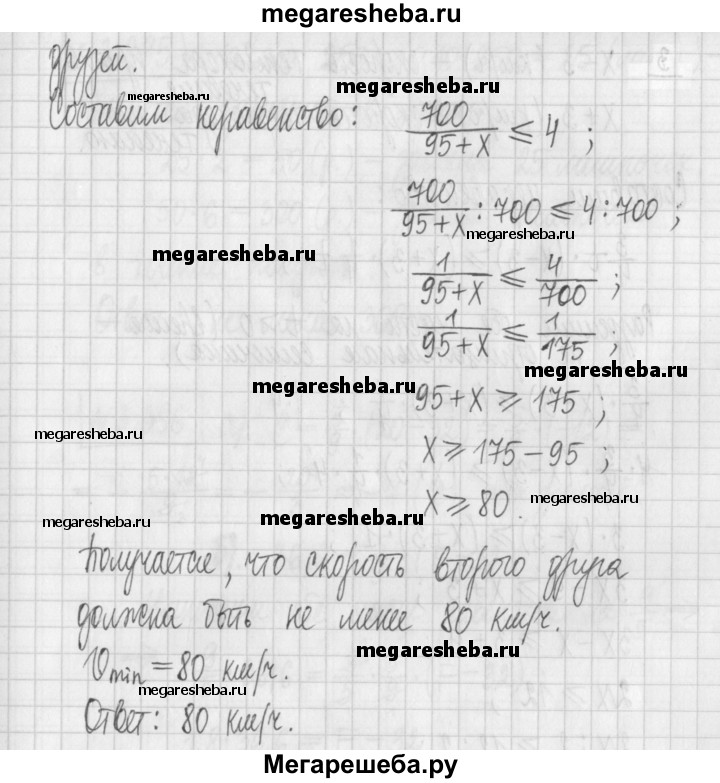 megaresheba.ru
друзей.
megaresheba.ru
Составим неравенство: 700/(95+x) ≤ 4 ;
megaresheba.ru
700/(95+x) : 700 ≤ 4 : 700 ;
megaresheba.ru
megaresheba.ru
1/(95+x) ≤ 4/700 ;
1/(95+x) ≤ 1/175 ;
megaresheba.ru
megaresheba.ru
95+x ≥ 175 ;
megaresheba.ru
x ≥ 175 − 95 ;
x ≥ 80 .
megaresheba.ru
megaresheba.ru
megaresheba.ru
Получается, что скорость второго друга
должна быть не менее 80 км/ч.
megaresheba.ru
υmin = 80 км/ч.
megaresheba.ru
Ответ: 80 км/ч.
Мегарешеба.ру